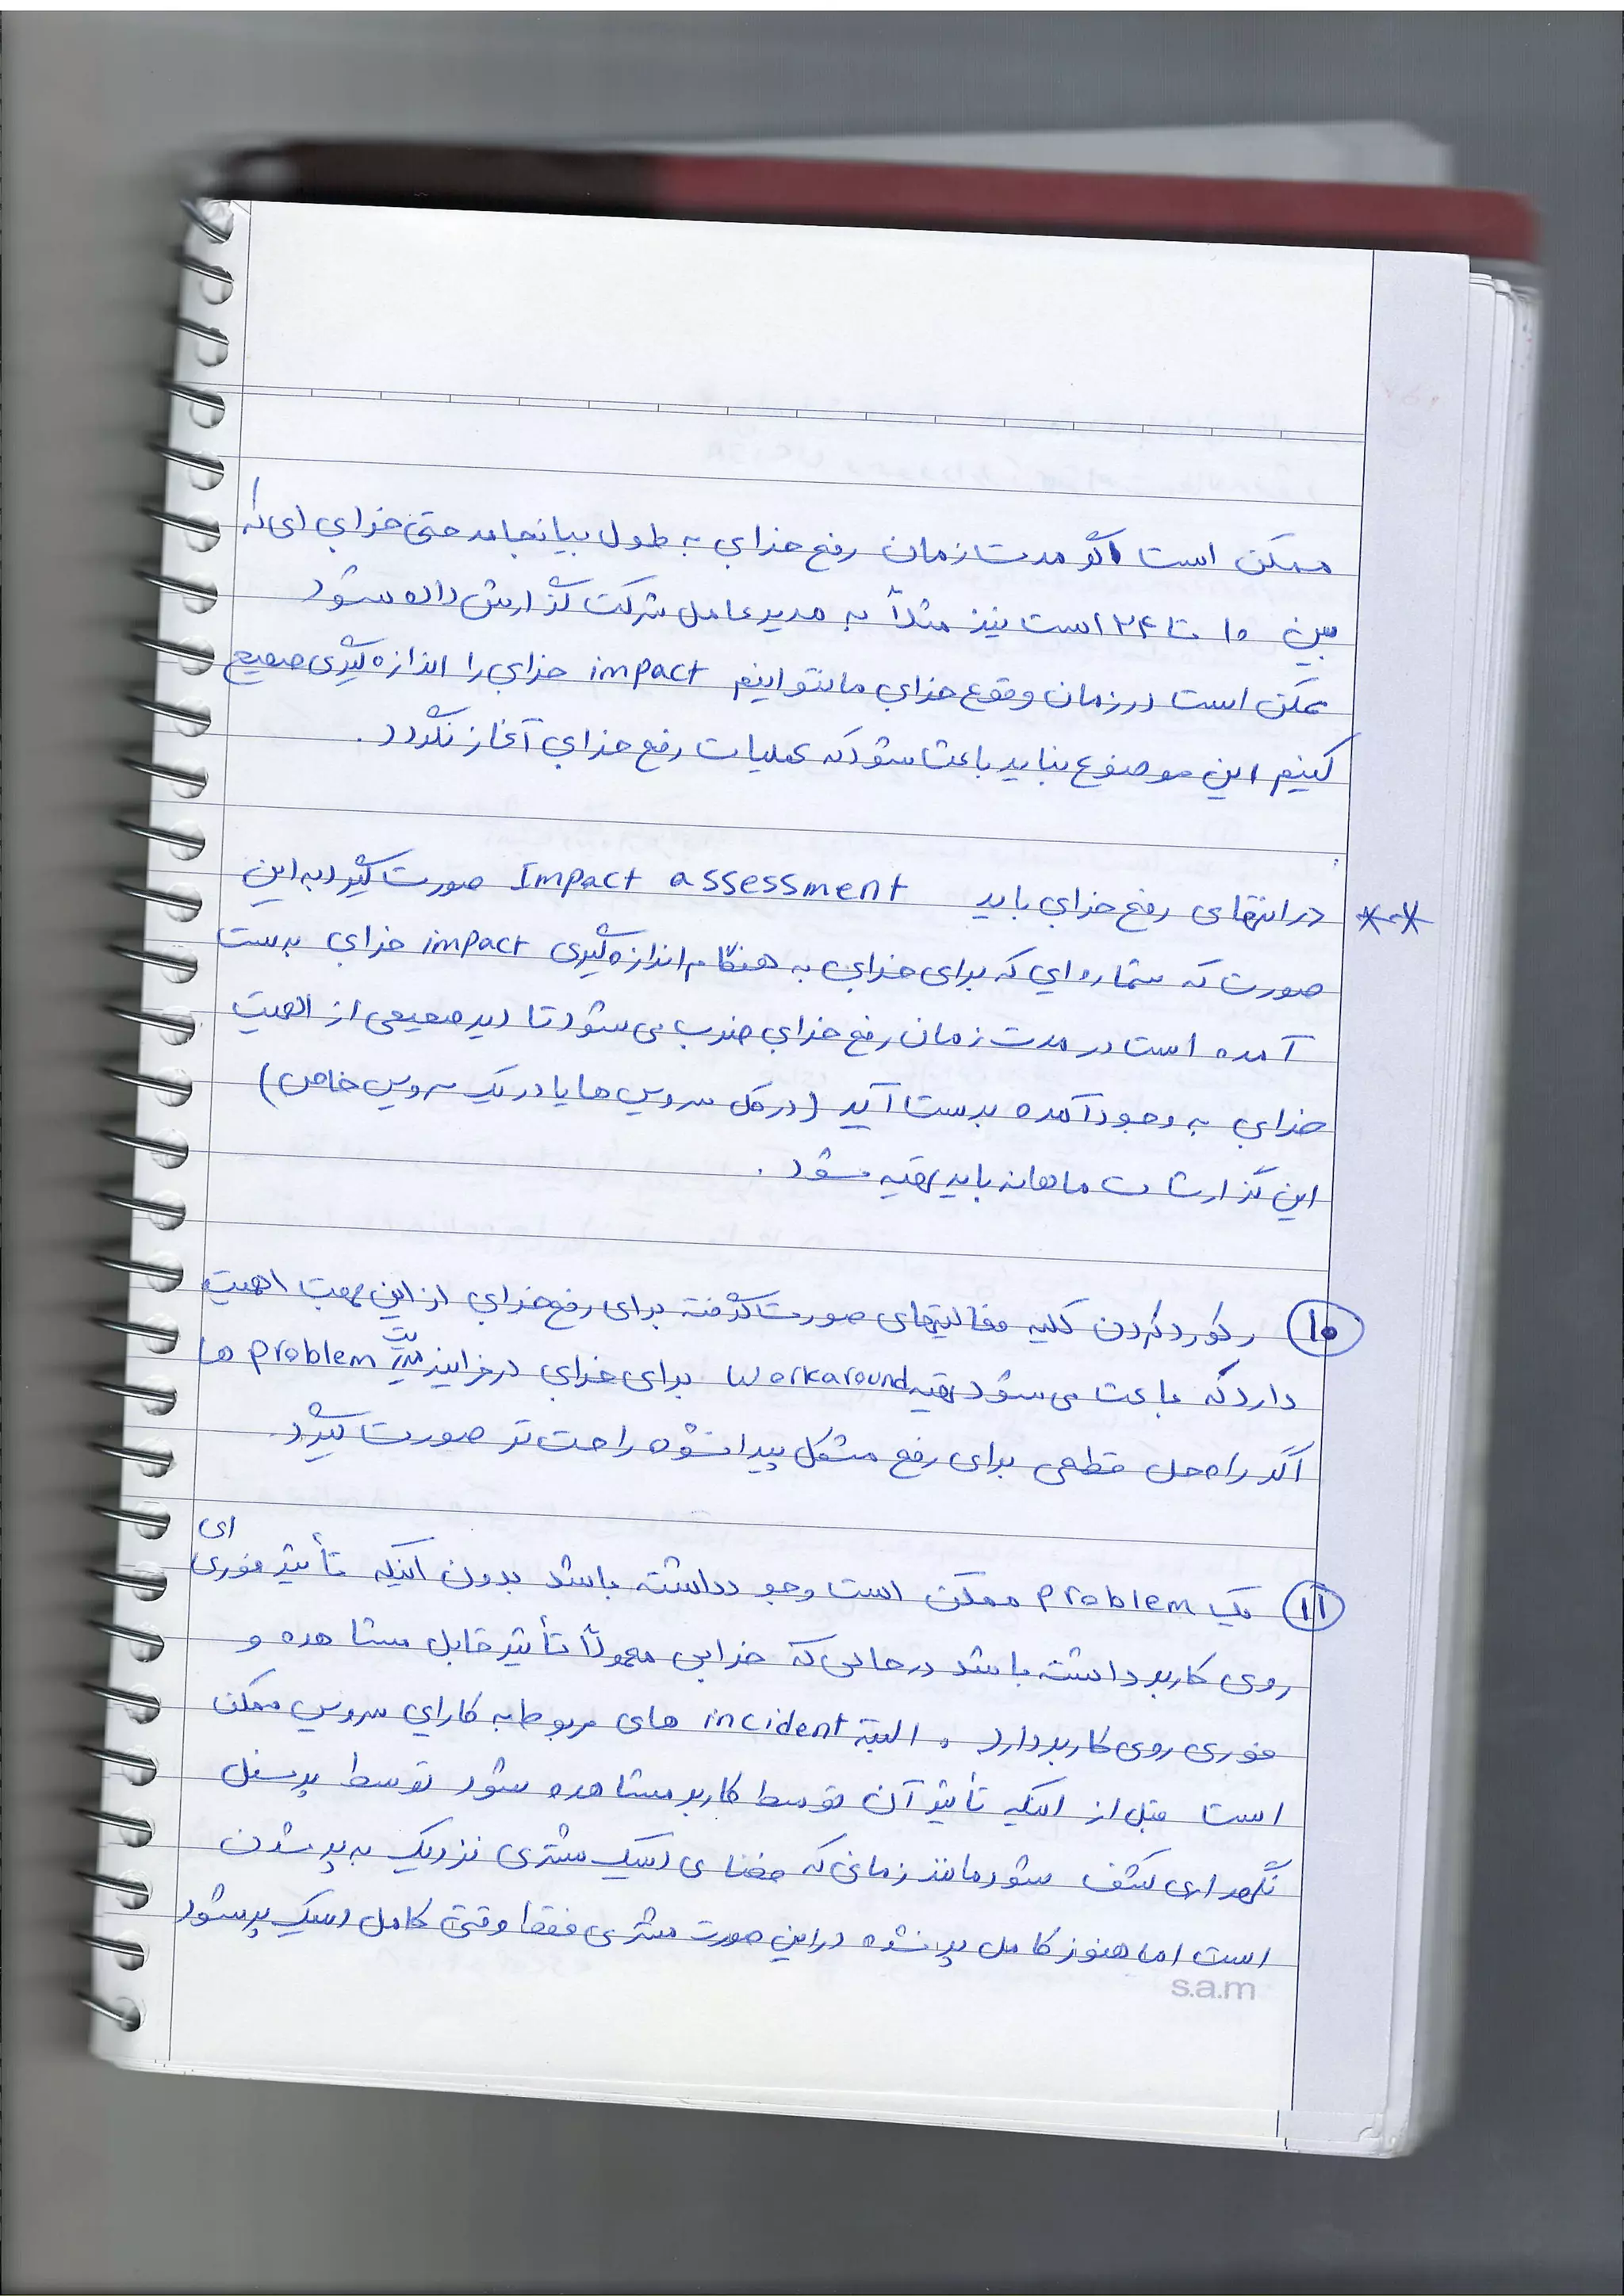 ممکن است اگر مدت زمان رفع خرابی به طول بیانجامد حتی خرابی ای که
بین ۱۰ تا ۲۴ است نیز مثلاً به مدیرعامل شرکت گزارش داده شود
ممکن است در زمان وقوع خرابی ما نتوانیم impact خرابی را اندازه گیری صحیح
کنیم این موضوع نباید باعث شود که عملیات رفع خرابی آغاز نگردد .
** در انتهای رفع خرابی باید Impact assessment صورت گیرد به این
صورت که شماره ای که برای خرابی به هنگام اندازه گیری impact خرابی بدست
آمده است در مدت زمان رفع خرابی ضرب می شود تا دید صحیحی از اهمیت
خرابی به وجود آمده بدست آید (در کل سرویس ها یا در یک سرویس خاص)
این گزارشات ماهانه باید تهیه شود .
۱۰ رکورد کردن کلیه فعالیتهای صورت گرفته برای رفع خرابی از این جهت اهمیت
دارد که باعث می شود تهیه workaround برای خرابی در فرایند مدیریت problem ها
اگر راه حل قطعی برای رفع مشکل پیدا نشود راحت تر صورت گیرد.
۱۱ یک problem ممکن است وجود داشته باشد بدون اینکه تأثیر فوری ای
روی کاربر داشته باشد در حالی که خرابی معمولاً تأثیر قابل مشاهده و
فوری روی کاربر دارد . البته incident های مربوط به کارای سرویس ممکن
است قبل از اینکه تأثیر آن توسط کاربر مشاهده شود توسط پرسنل
نگهداری کشف شود مانند زمانی که فضای دیسک مشتری نزدیک به پر شدن
است اما هنوز کامل پر نشده در این صورت مشتری فقط وقتی کامل دیسک پر شود
s.a.m